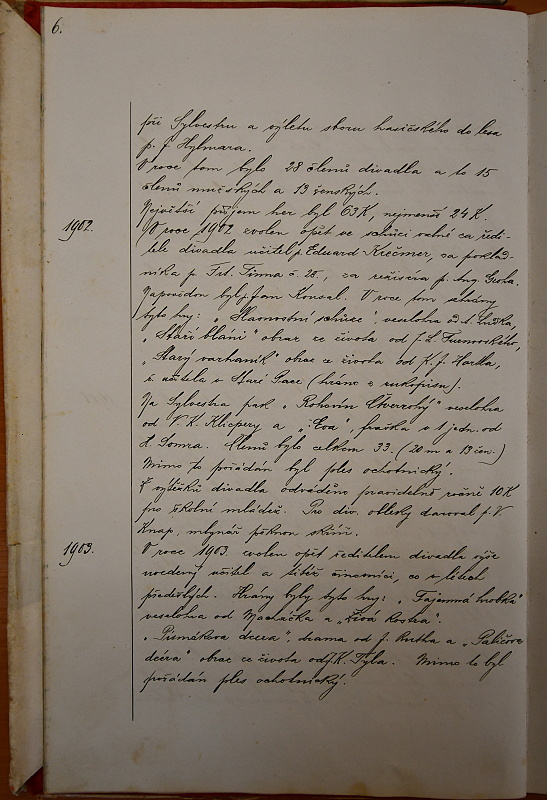 6.
při Sylvestru a výletu sboru hasičského do lesa
p. J. Hylmara.
V roce tom bylo 28 členů divadla a to 15
členů mužských a 13 ženských.
Největší příjem her byl 63 K, nejmenší 24 K.
1902.
V roce 1902 zvolen opět ve schůzi valné za ředi-
tele divadla učitel p. Eduard Krečmer, za poklad-
níka p. Frt. Tůma č. 28., za režiséra p. Aug. Groh.
Nápovědou byl p. Jan Konval. V roce tom sehrány
byty hry: „Slavnostní schůze", veselohra od A. Lužka,
„Staří blázni" obraz ze života od J. L. Turnovského,
„Starý varhaník" obraz ze života od K. J. Havla,
ř. učitele v Staré Pace (hráno z rukopisu).
Na Sylvestra pak „Rohovín Čtverrohý" veselohra
od V. K. Klicpery a „Eva", fraška v 1 jedn. od
H. Členů bylo celkem 33. (20 m a 13 žen.)
Mimo to pořádán byl ples ochotnický.
Z výtěžků divadla odváděno pravidelně ročně 10 K
pro školní mládež. Pro div. obleky daroval p. V.
Knap, mlynář pěknou skříň.
1903.
V roce 1903. zvolen opět ředitelem divadla výše
uvedený učitel a titéž činovníci, co v letech
předešlých. Hrány byly tyto hry: „Tajemná hrobka"
veselohra od Macháčka a „Živá kostra".
„Pašerákova dcera", drama od J. a „Paličova
dcera" obraz ze života od J. K. Tyla. Mimo to byl
pořádán ples ochotnický.